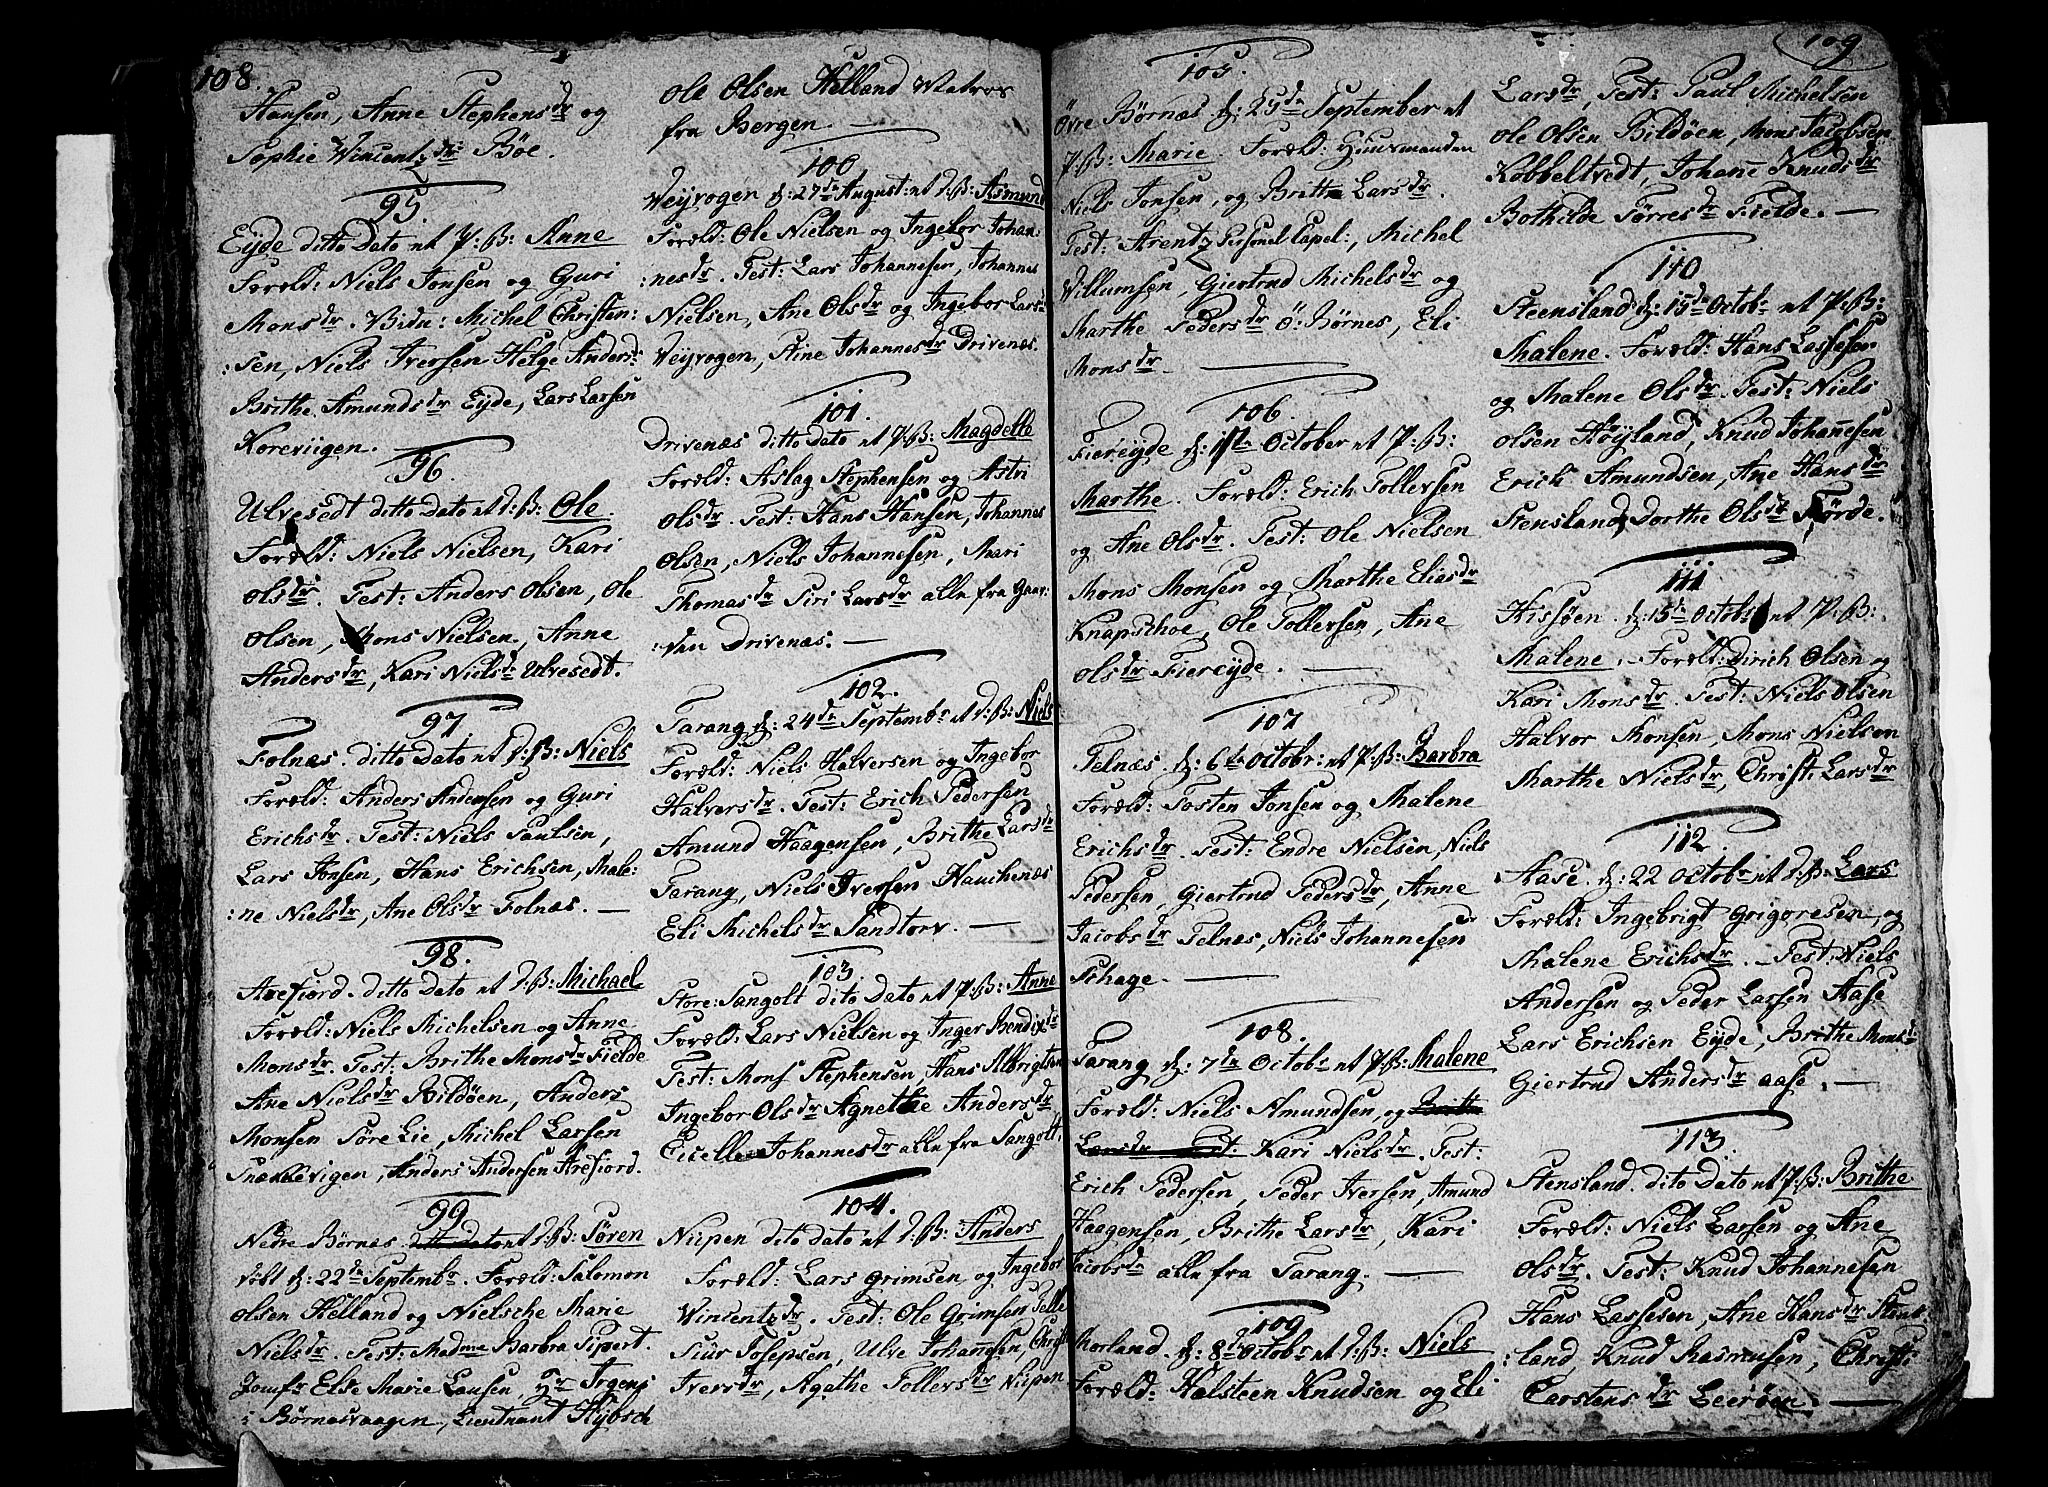 108.
Hansen, Anne Stephensdr og
Sophie Wincentzdr Böe.
95.
Eyde ditto Dato et P:B: Anne
Foræld: Niels Jonsen og Guri
Monsdr. Vidn: Michel Christen:
:sen, Niels Iversen Helge Andersdr
Brithe Amundsdr Eyde, Lars Larsen
Koreviigen.
96.
Ulvesedt ditto Dato et D:B: Ole.
Foræld: Niels Nielsen, Kari
Olsdr. Test: Anders Olsen, Ole
Olsen, Mons Nielsen, Anne
Andersdr, Kari Nielsdr Ulvesedt.
97
Folnæs. ditto Dato et D:B: Niels
Foræld: Anders Andersen og Guri
Erichsdr. Test: Niels Paulsen,
Lars Jonsen, Hans Erichsen, Male:
:ne Nielsdr, Ane Olsdr Folnæs. —
98.
Arefiord. ditto Dato et D:B: Michael
Foræld: Niels Michelsen og Anne
Monsdr. Test: Brithe Monsdr Fielde
Ane Nielsdr Bildöen, Anders
Monsen Söre Lie, Michel Larsen
Snekkevigen, Anders Andersen Arefiord.
99
Nedre Börnæs ditto Dato et D:B: Sören
död d: 22de Septembr. Foræld: Salomon
Olsen Helland og Nielsche Marie
Nielsdr. Test: Madme Barbra Sivert.
Jomfr Else Marie Lausen, Hr Irgens
i Börnæsvaagen, Lieutnant Hybsch
Ole Olsen Helland Matros
fra Bergen. —
100
Veyvogen d: 27de August: et D:B: Asmund
Foræld: Ole Nielsen og Ingebor Johan:
:nesdr. Test: Lars Johannesen, Johannes
Nielsen, Ane Olsdr og Ingebor Larsdr
Veyvogen, Stine Johannesdr Drivenæs.
101.
Drivenæs ditto Dato et P:B: Magdelle
Foræld: Aslag Stephensen og Astri
Olsdr. Test: Hans Hansen, Johannes
Olsen, Niels Johannesen, Mari
Thomasdr Siri Larsdr alle fra Gaar:
:den Drivenæs. —
102.
Tarang d: 24de Septembr et D:B: Niels
Foræld: Niels Halversen og Ingebor
Halversdr. Test: Erich Pedersen
Amund Haagensen, Brithe Larsdr
Tarang, Niels Iversen Hauchenæs
Eli Michelsdr Sandtorv. —
103.
Store: Sangolt dito Dato et P:B: Anne
Foræld: Lars Nielsen og Inger Bendixdr
Test: Mons Stephensen, Hans Albrigtsen
Ingebor Olsdr Agnethe Andersdr
Johannesdr alle fra Sangolt.
104.
Nipen dito Dato et D:B: Anders
Foræld: Lars Grimsen og Ingebor
Wincentzdr. Test: Ole Grimsen Telle
Siur Josepsen, Ulve Johannesen, Christi
Iversdr, Agathe Tollersdr Nipen
109
105.
Övre Börnæs d: 25de September et
P:B: Marie. Foræld: Huusmanden
Niels Jonsen, og Britte Larsdr.
Test: Arentz Personel Capel:, Michel
Villumsen, Giertrud Michelsdr og
Marthe Pedersdr Ö: Börnes, Eli
Monsdr —
106.
Fiereyde d: 1ste October et P:B:
Marthe. Foræld: Erich Tollevsen
og Ane Olsdr. Test: Ole Nielsen
Mons Monsen og Marthe Eliasdr
Knapschoe, Ole Tollevsen, Ane
Olsdr Fiereyde. —
107
Telnæs. d: 6te Octobr: et P:B: Barbra
Foræld: Tosten Jonsen og Malene
Erichsdr. Test: Endre Nielsen, Niels
Pedersen, Giertrud Pedersdr, Anne
Jacobsdr Telnæs, Niels Johannesen
Schage. —
108.
Tarang d: 7de Octobr et P:B: Malene
Foræld: Niels Amundsen, og Britte
Larsdr Test: Kari Nielsdr. Test:
Erich Pedersen, Peder Iversen, Amund
Haagensen, Brithe Larsdr, Kari
Jacobsdr alle fra Tarang. —
109
Morland. d: 8de Octobr et D:B: Niels
Foræld: Halsteen Knudsen og Eli
Larsdr, Test: Paul Michelsen
Ole Olsen Bildöen, Mons Jacobsen
Kobbeltvedt, Johane Knudsdr
Bothilde Törresdr Fielde. —
110
Steensland d: 15de Octobr et P:B:
Malene. Foræld: Hans Lassesen
og Malene Olsdr. Test: Niels
Olsen Höyland, Knud Johannesen
Erich Amundsen, Ane Hansdr
Stensland, Dorthe Olsdr Förde.
111
Hissöen. d: 15de Octobr et P:B:
Malene. Foræld: Dirich Olsen og
Kari Monsdr. Test: Niels Olsen
Halvor Monsen, Mons Nielsen
Marthe Nielsdr, Christi Larsdr
112.
Aase. d: 22 Octobr et D:B: Lars
Foræld: Ingebrigt Grigoresen, og
Malene Erichsdr. Test: Niels
Andersen og Peder Larsen Aase
Lars Erichsen Eyde, Brithe Monsdr
Giertrud Andersdr Aase. —
113.
Stensland. dito Dato et P:B: Brithe
Foræld: Niels Larsen og Ane
Olsdr. Test: Knud Johannesen
Hans Lassesen, Ane Hansdr Stens:
:land, Knud Rasmusen, Christi
Carstensdr Leeröen. —